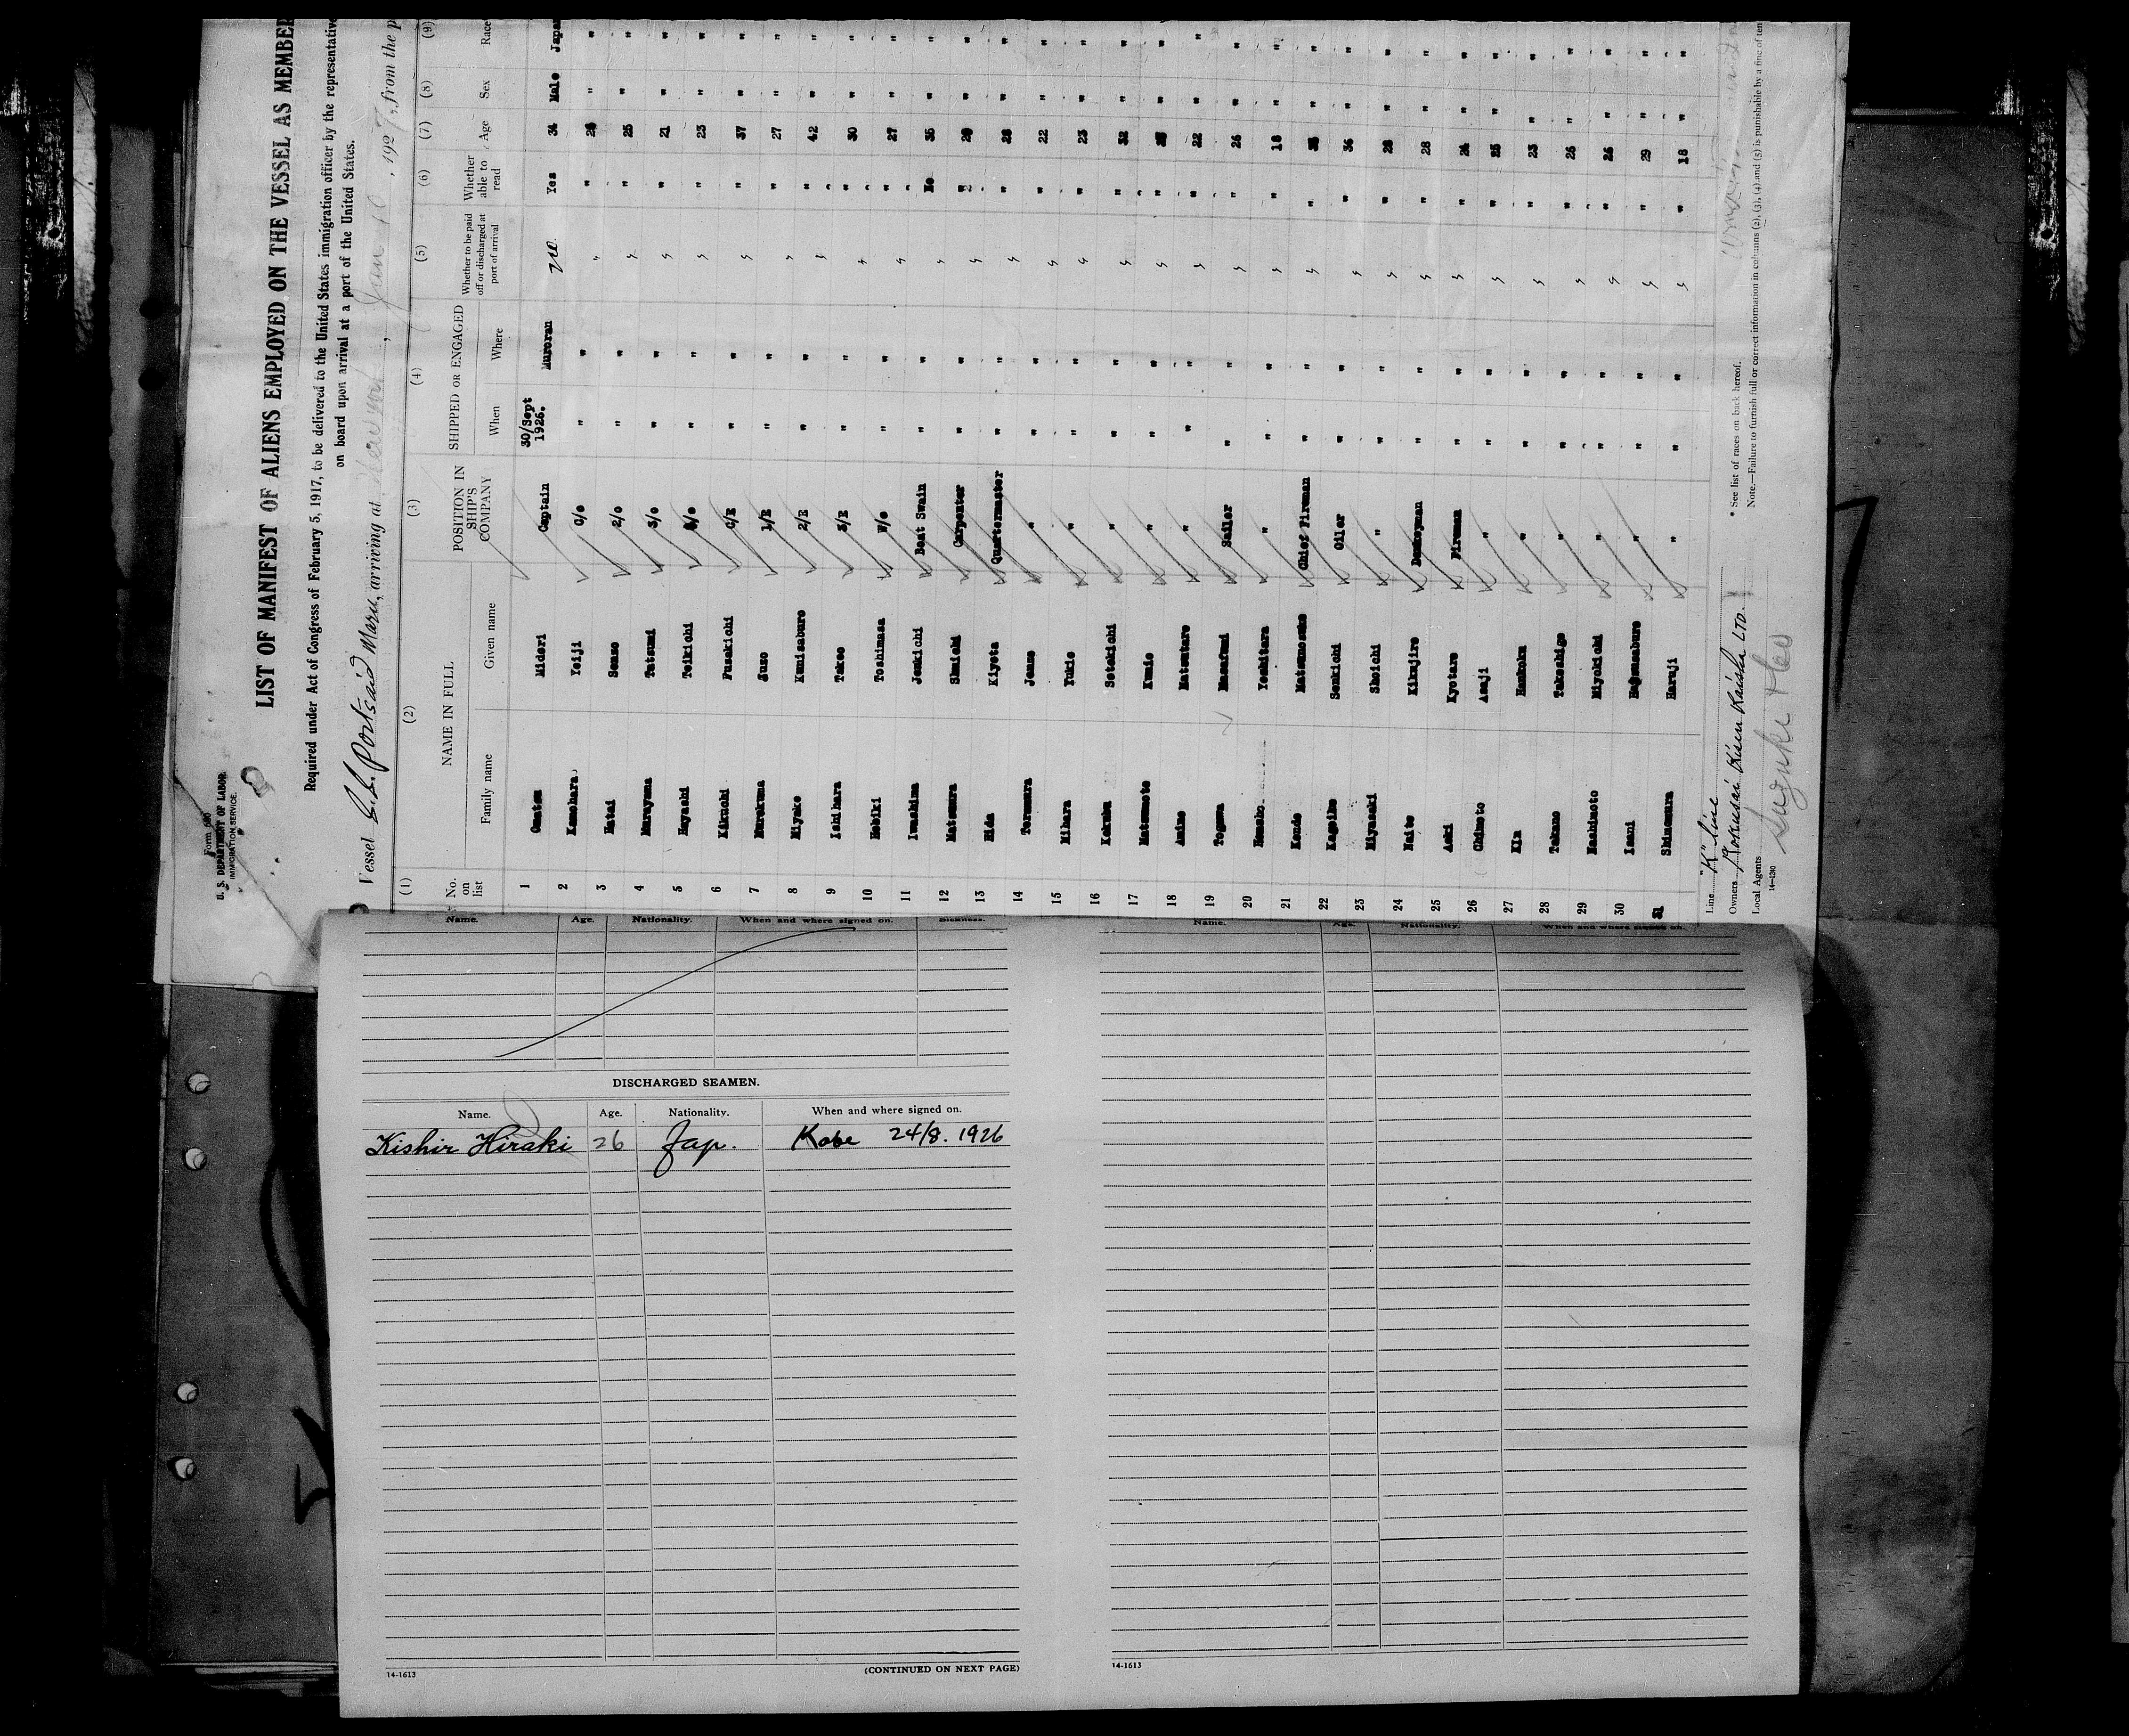 Form 680
U. S. DEPARTMENT OF LABOR
IMMIGRATION SERVICE
LIST OF MANIFEST OF ALIENS EMPLOYED ON THE VESSEL AS MEMBER
Required under Act of Congress of February 5, 1917, to be delivered to the United States immigration officer by the representative
on board upon arrival at a port of the United States.
Vessel S.S. Portsaid Maru, arriving at , Jan , 1927, from the p
(1) (2) (3) (4) (5) (6) (7) (8) (9)
No. on list NAME IN FULL POSITION IN SHIP'S COMPANY SHIPPED OR ENGAGED Whether to be paid off or discharged at port of arrival Whether able to read Age Sex Race
Family name Given name When Where
1 Midori Captain 30/Sept 1926. Muroran no Yes 34 Male Japan
2 Kamohara Yeiji C/O " " " " " "
3 Hatai Senzo 2/O " " " " 25 " "
4 Murayama Tatsumi 3/O " " " " 21 " "
5 Hayashi Teikichi " " " " 23 " "
6 Kikuchi Fusakichi C/E " " " " 37 " "
7 Murakuma Juzo 1/E " " " " 27 " "
8 Miyake Kunisaburo 2/E " " " " 42 " "
9 Ishihara Takeo 3/E " " " " 30 " "
10 Hebiki Toshimasa W/O " " " " 27 " "
11 Iwashima Jenkichi Boat Swain " " " No 35 " "
12 Matsumura Shuichi Carpenter " " " 29 " "
13 Hida Kiyota Quartermaster " " " " 28 " "
14 Teramura Jenzo " " " " " 22 " "
15 Mihara Yukio " " " " " 23 " "
16 Kokubu Sotokichi " " " " " 32 " "
17 Matsumoto Kunio " " " " " " "
18 Amino Matsutaro " " " " " 22 " "
19 Togawa Masafumi Sailor " " " " 26 " "
20 Yoshitara " " " " " 18 " "
21 Kondo Matsunosuke Chief Fireman " " " " " "
22 Kageike Senkichi Oiler " " " " 36 " "
23 Miyazaki Shoichi " " " " " 28 " "
24 Naito Kikujiro Donkeyman " " " " 28 " "
25 Aoki Kyotaro Fireman " " " " 24 " "
26 Chimoto Asaji " " " " " 25 " "
27 Kin " " " " " 23 " "
28 Takano Takeshige " " " " " 26 " "
29 Hashimoto Miyokichi " " " " " 26 " "
30 Isami " " " " " 29 " "
31 Shinamura Haruji " " " " " 18 " "
Line "K" Line
Owners Kokusai Kisen Kaisha LTD.
Local Agents Suzuki & Co
14-1240
* See list of races on back hereof.
Note.—Failure to furnish full or correct information in columns (2), (3), (4), and (5) is punishable by a fine of ten
Name. Age. Nationality. When and where signed on. Sickness.
DISCHARGED SEAMEN.
Name. Age. Nationality. When and where signed on.
Kishir Hiraki 26 Jap. Kobe 24/8. 1926
14-1613
(CONTINUED ON NEXT PAGE)
Name. Age. Nationality. When and where signed on.
14-1613